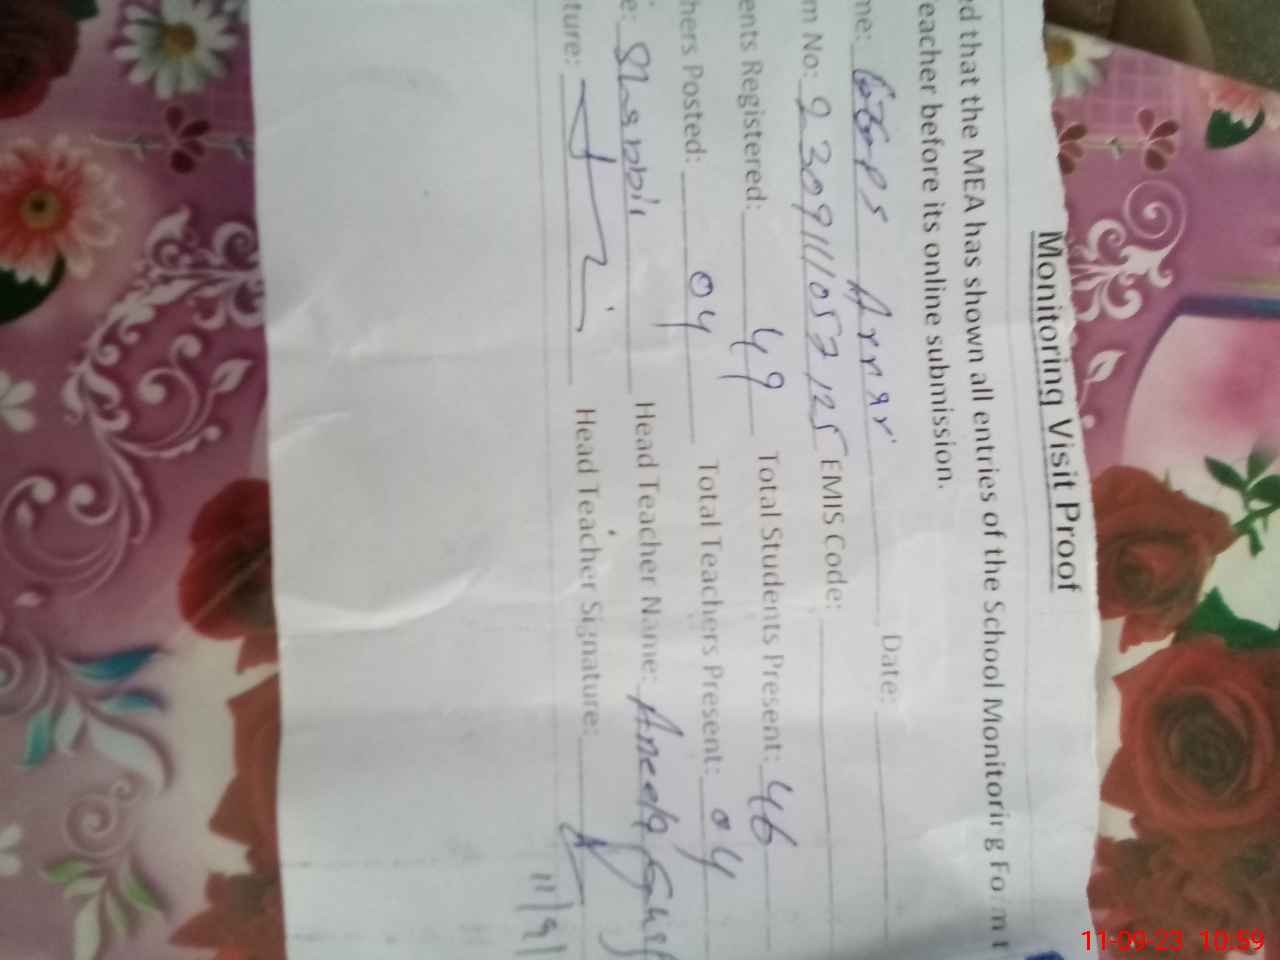 Monitoring Visit Proof
ed that the MEA has shown all entries of the School Monitoring Form t
eacher before its online submission.
me: GGPS Arrar Date:
m No: 230911105 125 EMIS Code:
ents Registered: 49 Total Students Present: 46
hers Posted: 04 Total Teachers Present: 04
e: Shabbir Head Teacher Name: Aneela
ture: Head Teacher Signature:
11/9/
11-09-23 10:59